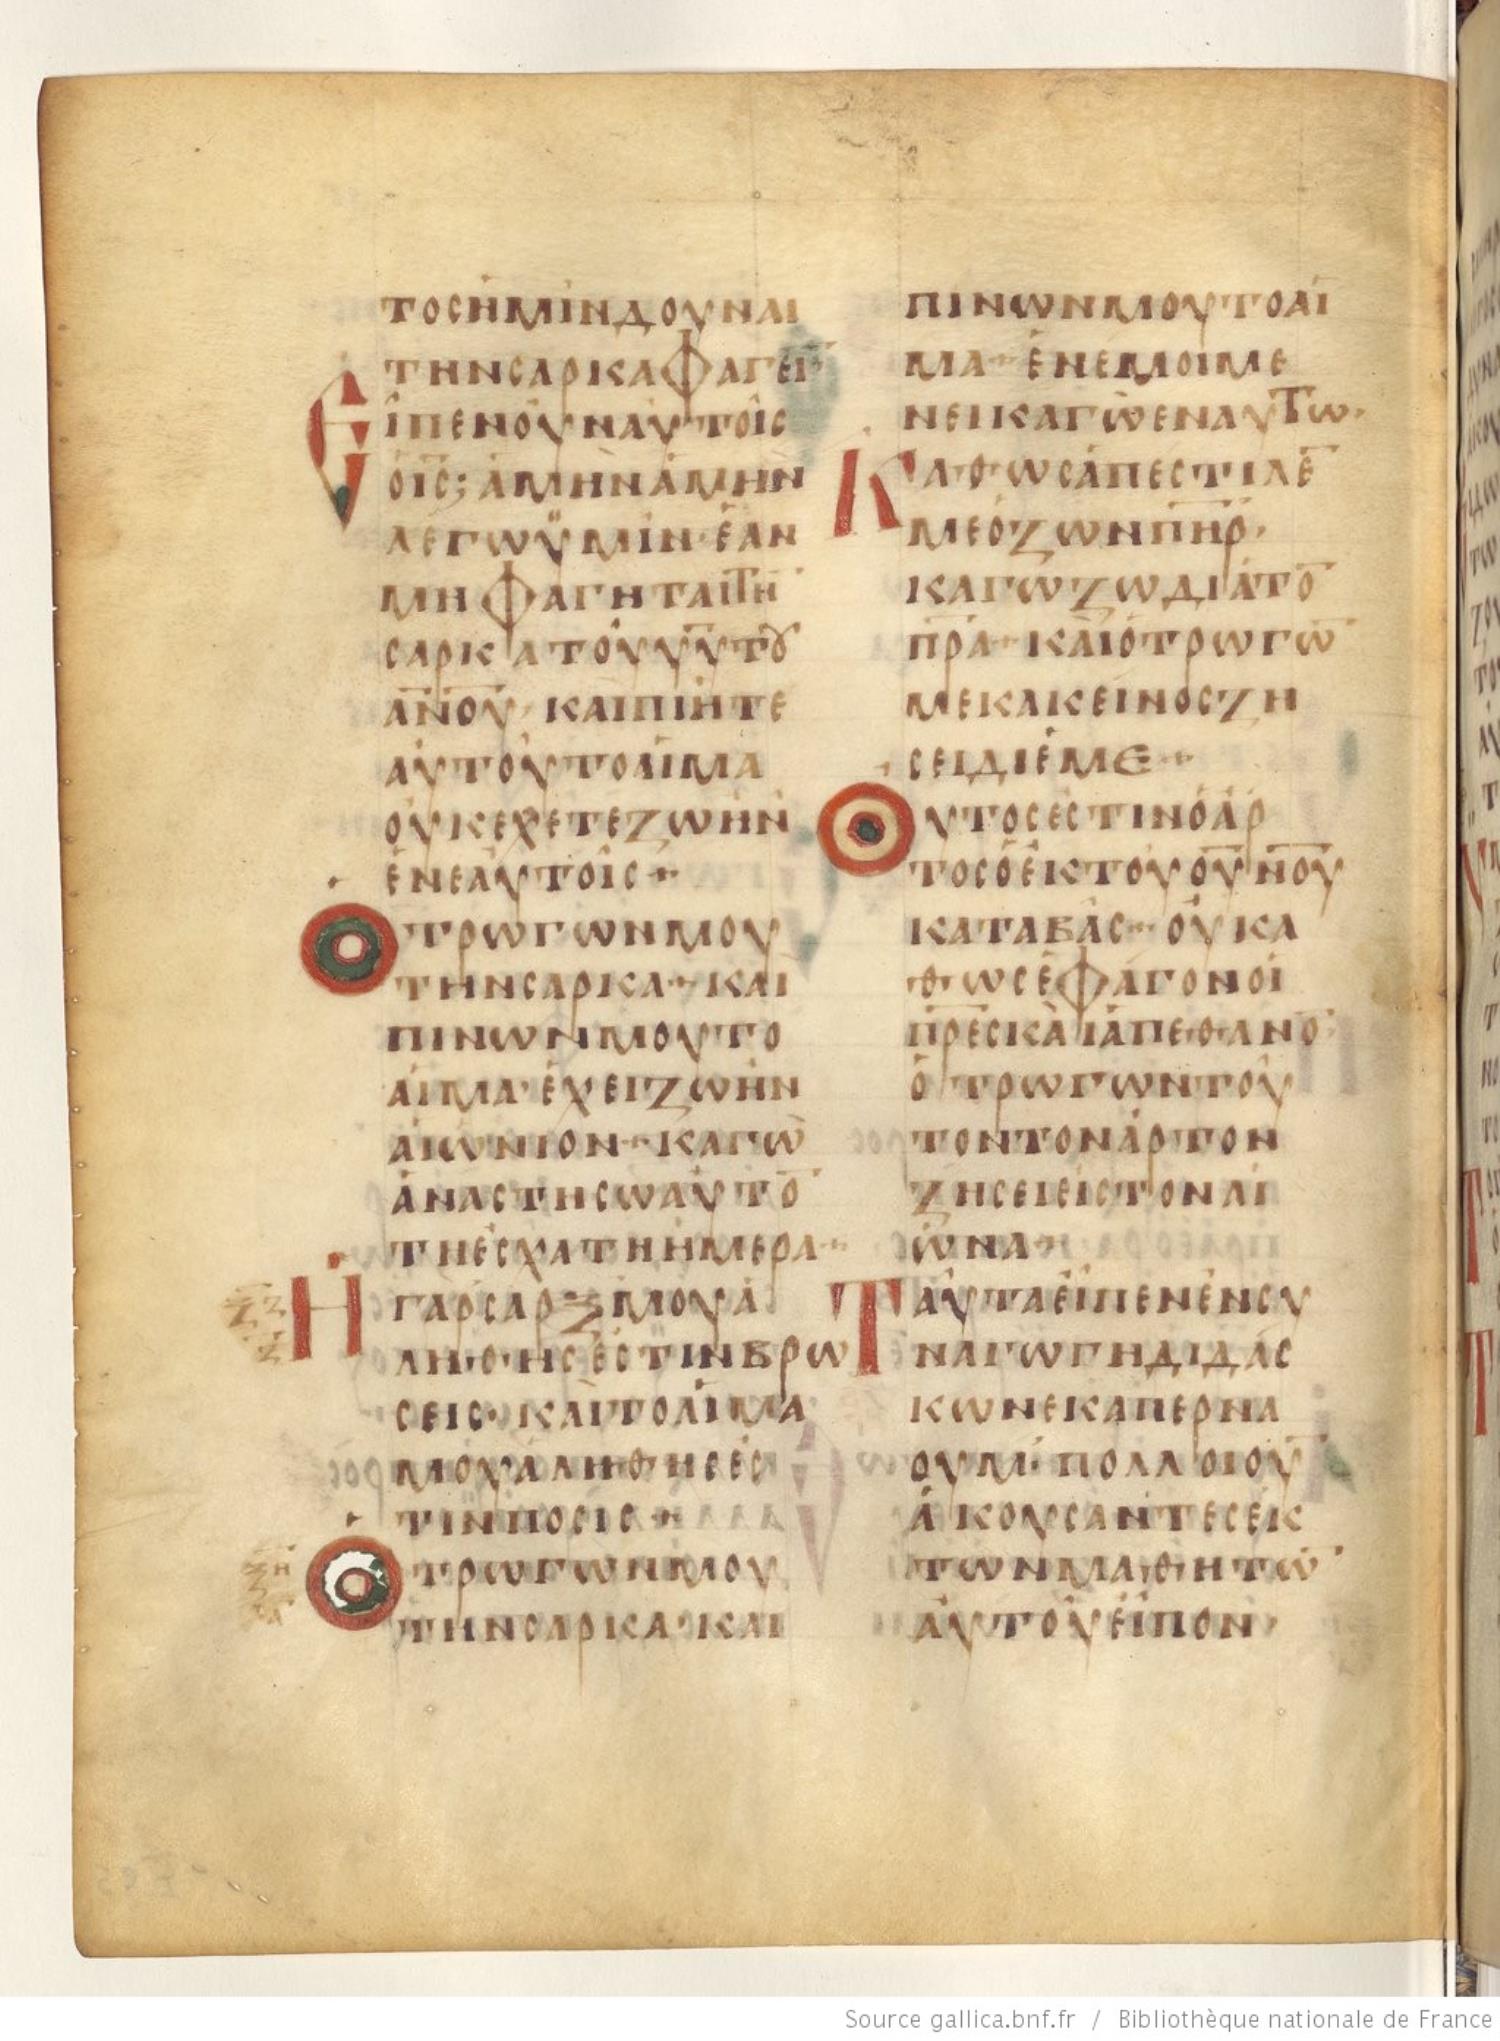 ΤΟСΗΜΙΝΔΟΥΝΑΙ
ΤΗΝСΑΡΚΑΦΑΓΕΙ̅
ΕΙΠΕΝΟΥΝΑΥΤΟΙС
ΟΙ̅С̅; ΑΜΗΝΑΜΗΝ
ΛΕΓΩΫΜΙΝ· ΕΑΝ
ΜΗΦΑΓΗΤΑΙΤΗ̅
СΑΡΚΑΤΟΥΥ̅Υ̅ΤȢ
Α̅Ν̅Ο̅Υ̅· ΚΑΙΠΙΗΤΕ
ΑΥΤΟΥΤΟΑΙΜΑ
ΟΥΚΕΧΕΤΕΖΩΗΝ
ΕΝΕΑΥΤΟΙС·
ΟΤΡΩΓΩΝΜΟΥ
ΤΗΝСΑΡΚΑ· ΚΑΙ
ΠΙΝΩΝΜΟΥΤΟ
ΑΙΜΑ· ΕΧΕΙΖΩΗΝ
ΑΙΩΝΙΟΝ· ΚΑΓΩ
ΑΝΑСΤΗСΩΑΥΤΟ̅
ΤΗΕСΧΑΤΗΗΜΕΡΑ·
ΗΓΑΡСΑΡΞΜΟΥΑ
ΛΗΘΗСΕСΤΙΝΒΡΩ
СΕΙС· ΚΑΙΤΟΑΙΜΑ
ΜΟΥΑΛΗΘΗСΕС
ΤΙΝΠΟСΙС·
ΟΤΡΩΓΩΝΜΟΥ
ΤΗΝСΑΡΚΑ· ΚΑΙ
ΠΙΝΩΝΜΟΥΤΟΑΙ
ΜΑ· ΕΝΕΜΟΙΜΕ
ΝΕΙΚΑΓΩΕΝΑΥΤΩ·
ΚΑΘΩСΑΠΕСΤΙΛΕ̅
ΜΕΟΖΩΝΠ̅Η̅Ρ̅·
ΚΑΓΩΖΩΔΙΑΤΟ̅
Π̅Ρ̅Α̅· ΚΑΙΟΤΡΩΓΩ̅
ΜΕΚΑΚΕΙΝΟСΖΗ
СΕΙΔΙΕΜΕ·
ΟΥΤΟСΕСΤΙΝΟΑΡ
ΤΟСΟΕΚΤΟΥΟ̅Υ̅Ν̅Ο̅Υ̅
ΚΑΤΑΒΑС· ΟΥΚΑ
ΘΩСΕΦΑΓΟΝΟΙ
Π̅Ρ̅Ε̅С̅ΚΑΙΑΠΕΘΑΝΟ̅·
Ο ΤΡΩΓΩΝΤΟΥ
ΤΟΝΤΟΝΑΡΤΟΝ
ΖΗСΕΙΕΙСΤΟΝΑΙ
ΩΝΑ·
ΤΑΥΤΑΕΙΠΕΝΕΝСΥ
ΝΑΓΩΓΗΔΙΔΑС
ΚΩΝΕΚΑΠΕΡΝΑ
ΟΥΜ· ΠΟΛΛΟΙΟΥ̅
ΑΚΟΥСΑΝΤΕСΕΚ
ΤΩΝΜΑΘΗΤΩ̅
ΑΥΤΟΥΕΙΠΟΝ·
Source gallica.bnf.fr / Bibliothèque nationale de France